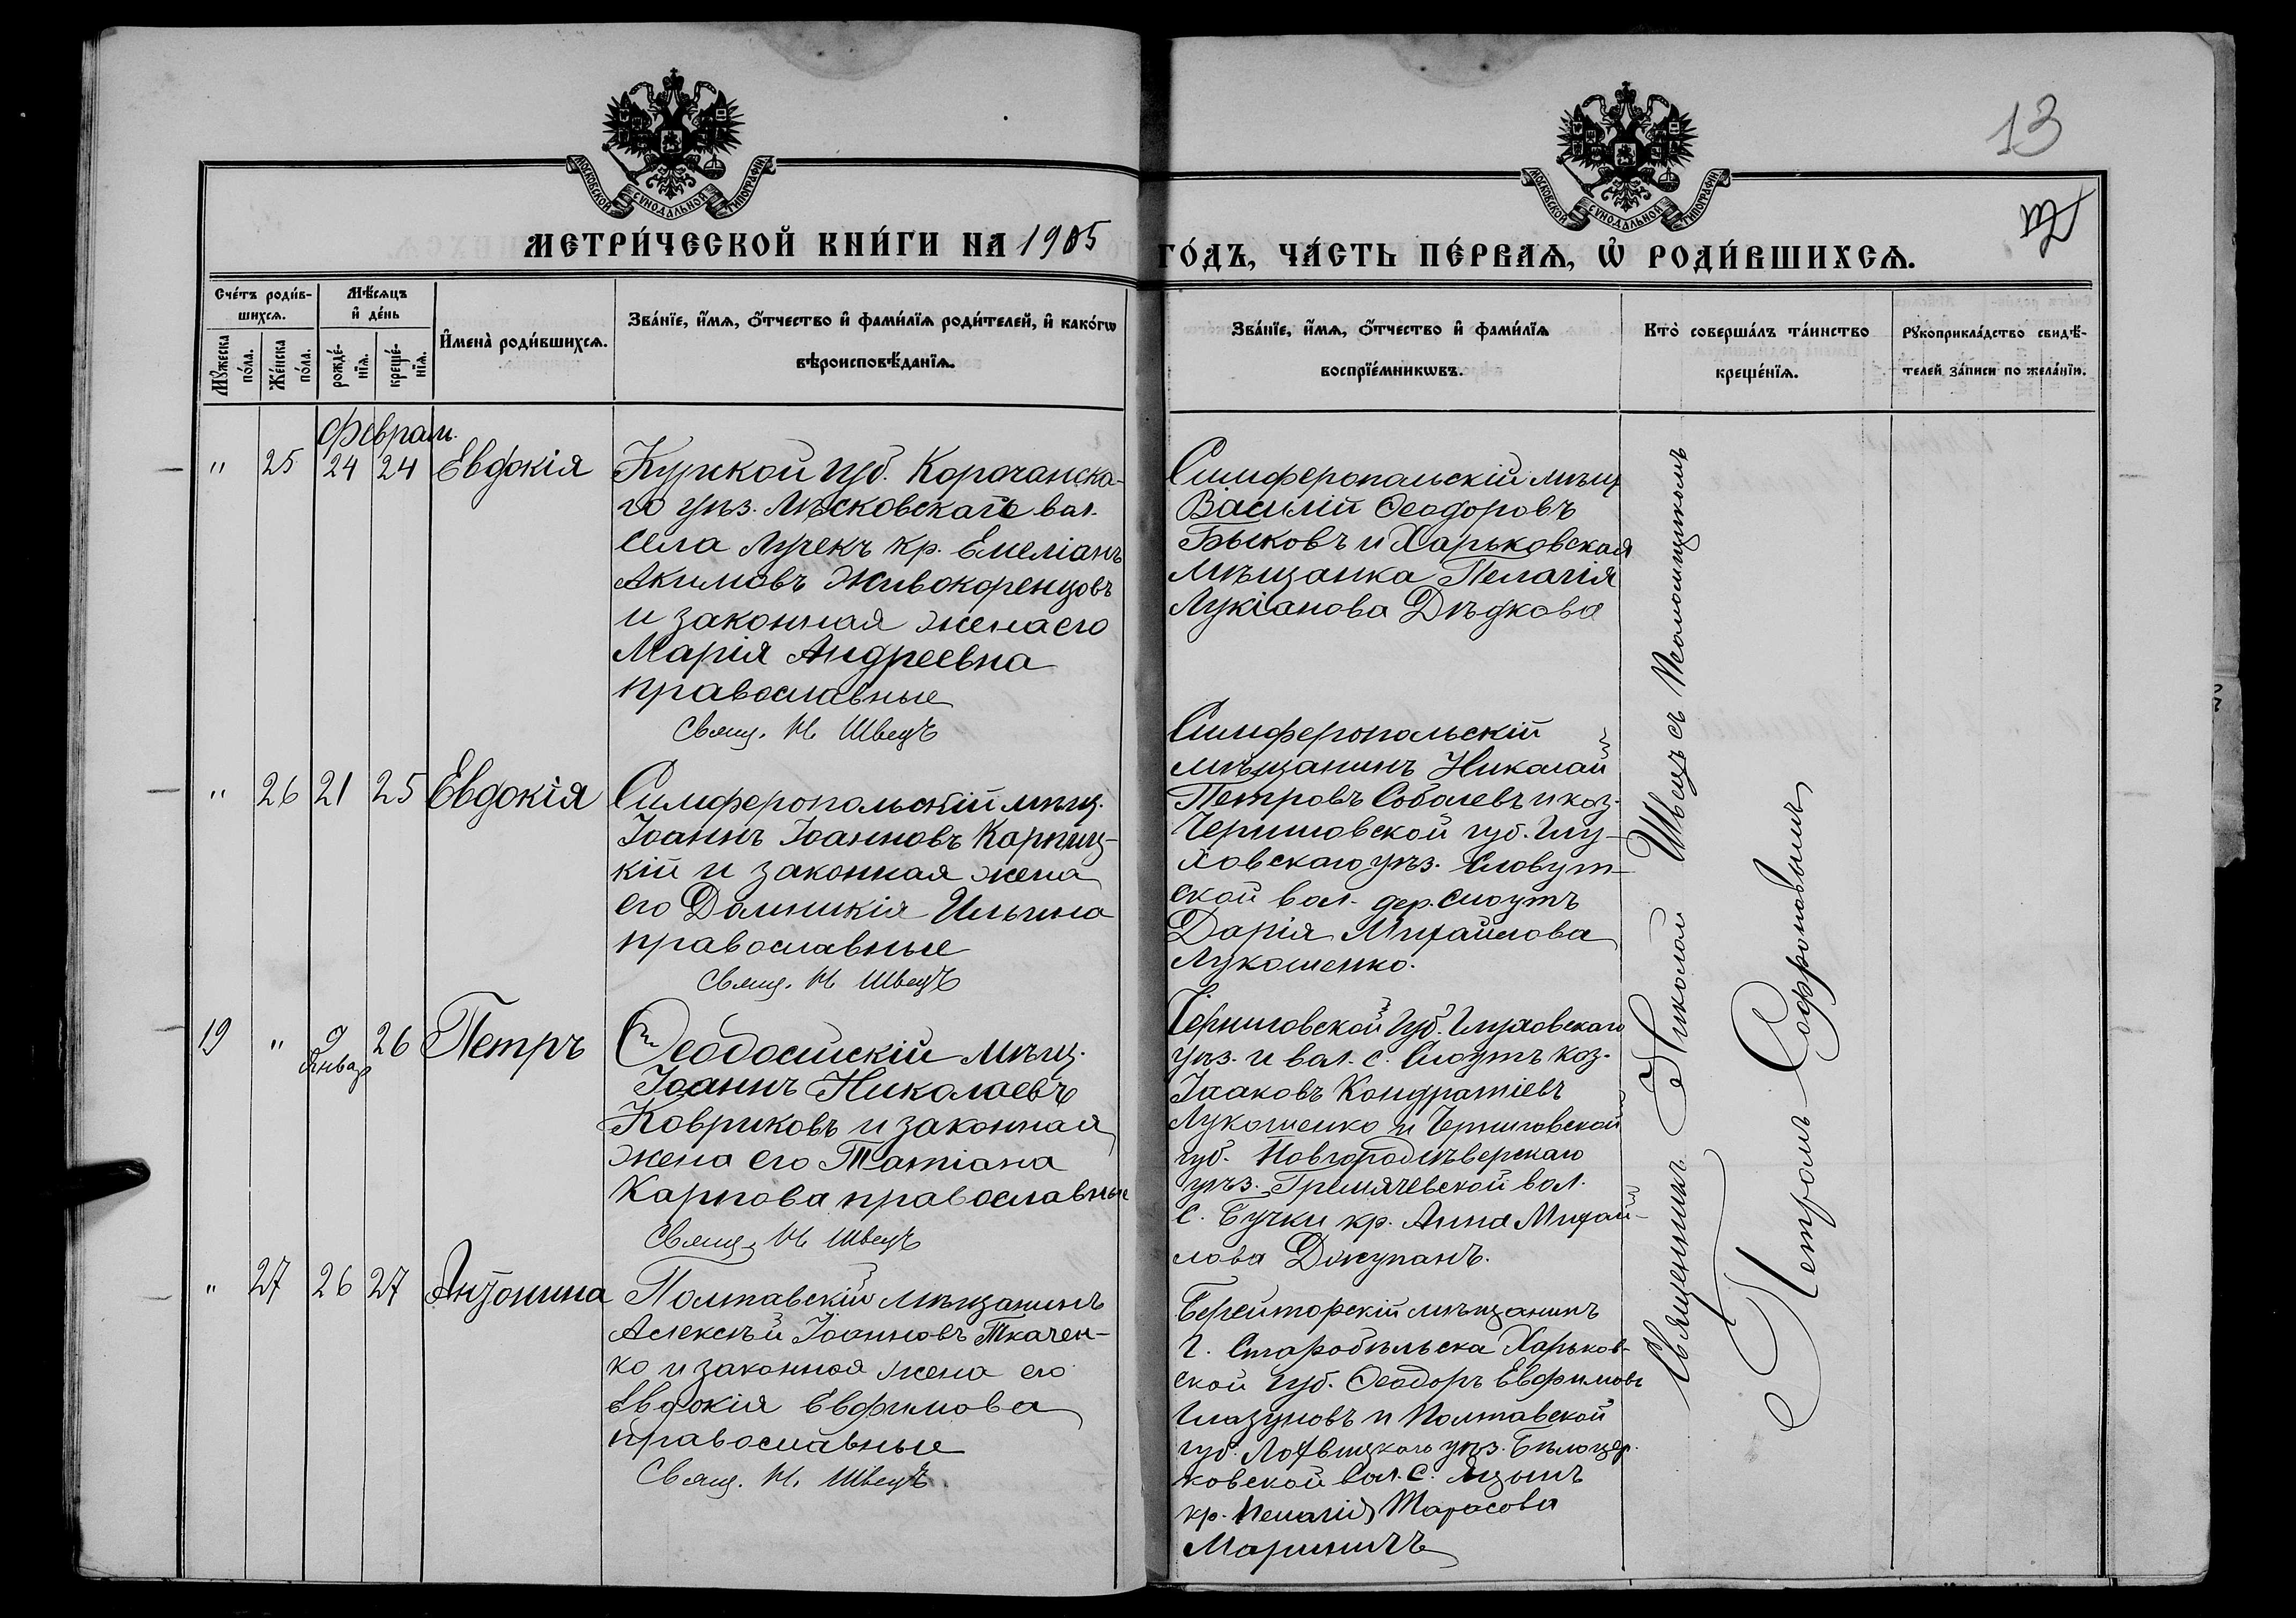 13
МОСКОВСКОЙ СУНОДАЛЬНОЙ ТИПОГРАФІИ
МОСКОВСКОЙ СУНОДАЛЬНОЙ ТИПОГРАФІИ
МЕТРИ́ЧЕСКОЙ КНИ́ГИ НА 1905
ГО́ДЪ, ЧА́СТЬ ПЕ́РВАѦ, Ѡ҆ РОДИ́ВШИХСѦ.
Сче́тъ роди́в-
шихсѧ.
Мꙋ́жеска по́ла.
Же́нска по́ла.
Мѣ́сѧцъ
и҆ де́нь
рожде́-
нїѧ.
креще́-
нїѧ.
И҆мена̀ роди́вшихсѧ.
Зва́нїе, и҆́мѧ, ѻ҆́тчество и҆ фами́лїѧ роди́телей, и҆ како́гѡ
вѣроисповѣ́данїѧ.
Зва́нїе, и҆́мѧ, ѻ҆́тчество и҆ фами́лїѧ
воспрїе́мникѡвъ.
Кто̀ соверша́лъ та́инство
креще́нїѧ.
Рꙋкоприкла́дство свидѣ́-
телей за́писи по жела́нїю.
Феврал.
" 25 24 24 Евдокія
Курской губ. Корочанска-
го уѣз. Лѣсковскаго вол.
села Лучекъ кр. Емеліанъ
Акимовъ Живокоренцовъ
и законная жена его
Марія Андреевна
православные
Свящ. Н. Швецъ
Симферопольскій мѣщ
Василій Ѳеодоровъ
Быковъ и Харьковская
мѣщанка Пелагія
Лукіанова Дѣдкова
" 26 21 25 Евдокія
Симферопольскій мѣщ.
Іоаннъ Іоанновъ Карпиц-
кій и законная жена
его Домникія Ильина
православные
Свящ. Н. Швецъ
Симферопольскій
мѣщанинъ Николай
Петровъ Соболевъ и коз.
Черниговской губ. Глу-
ховскаго уѣз. Словут-
ской вол. дер. Слоутъ
Дарія Михайлова
Лукошенко.
19 " 9 Январ 26 Петръ
Ѳеодосійскій мѣщ.
Іоаннъ Николаевъ
Ковриковъ и законная
жена его Татіана
Карпова православные
Свящ. Н. Швецъ
Черниговской губ. Глуховскаго
уѣз. и вол. с. Слоутъ коз.
Іаковъ Кондратіевъ
Лукошенко и Черниговской
губ. Новгородсѣверскаго
уѣз. Гремячевской вол.
с. Бучки кр. Анна Михай-
лова Джупанъ.
" 27 26 27 Антонина
Полтавскій мѣщанинъ
Алексѣй Іоанновъ Ткачен-
ко и законная жена его
Евдокія Евфимова
православные
Свящ. Н. Швецъ.
мѣщанинъ
г. Старобѣльска Харьков-
ской губ. Ѳеодоръ Евфимовъ
Глазуновъ и Полтавской
губ. Лохвицкаго уѣз. Бѣлоцер-
ковской вол. с.
кр. Пелагія Тарасова
Мариничъ
Священникъ Николай Швецъ съ псаломщикомъ
Петромъ Софроновымъ